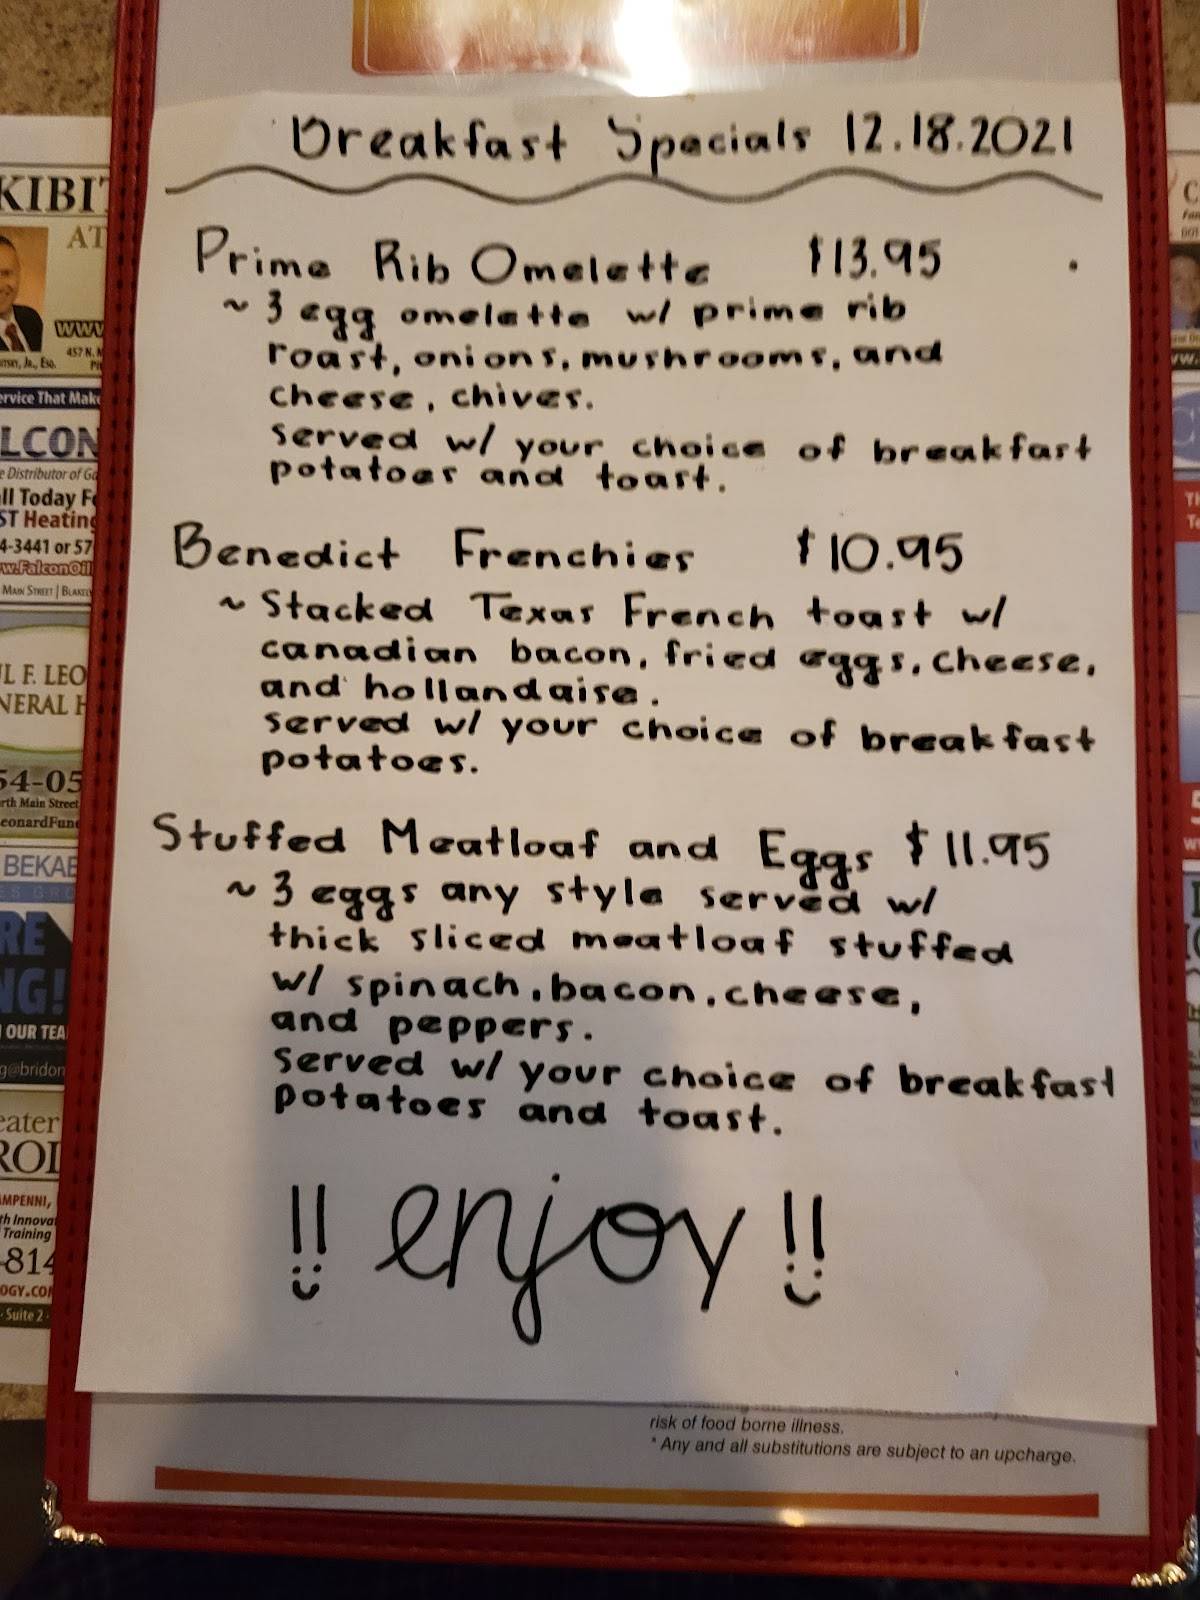 Breakfast Specials 12.18.2021
Prime Rib Omelette $13.95
~ 3 egg omelette w/ prime rib
roast, onions, mushrooms, and
cheese, chives.
served w/ your choice of breakfast
potatoes and toast.
Benedict Frenchies $10.95
~ Stacked Texas French toast w/
canadian bacon, fried eggs, cheese,
and hollandaise.
served w/ your choice of breakfast
potatoes.
Stuffed Meatloaf and Eggs $11.95
~ 3 eggs any style served w/
thick sliced meatloaf stuffed
w/ spinach, bacon, cheese,
and peppers.
served w/ your choice of breakfast
potatoes and toast.
!! enjoy !!
risk of food borne illness.
* Any and all substitutions are subject to an upcharge.
KIBIT
AT
WWW
457 N. M
ervice That Make
LCON
e Distributor of Ga
ll Today F
ST Heating
4-3441 or 57
w.FalconOil
MAIN STREET | BLAKEL
L F. LEO
NERAL H
54-05
rth Main Street
eonardFune
BEKAE
RE
NG!
OUR TEA
g@bridon
eater
ROI
AMPENNI,
th Innova
Training
-814
OGY.CO
· Suite 2 ·